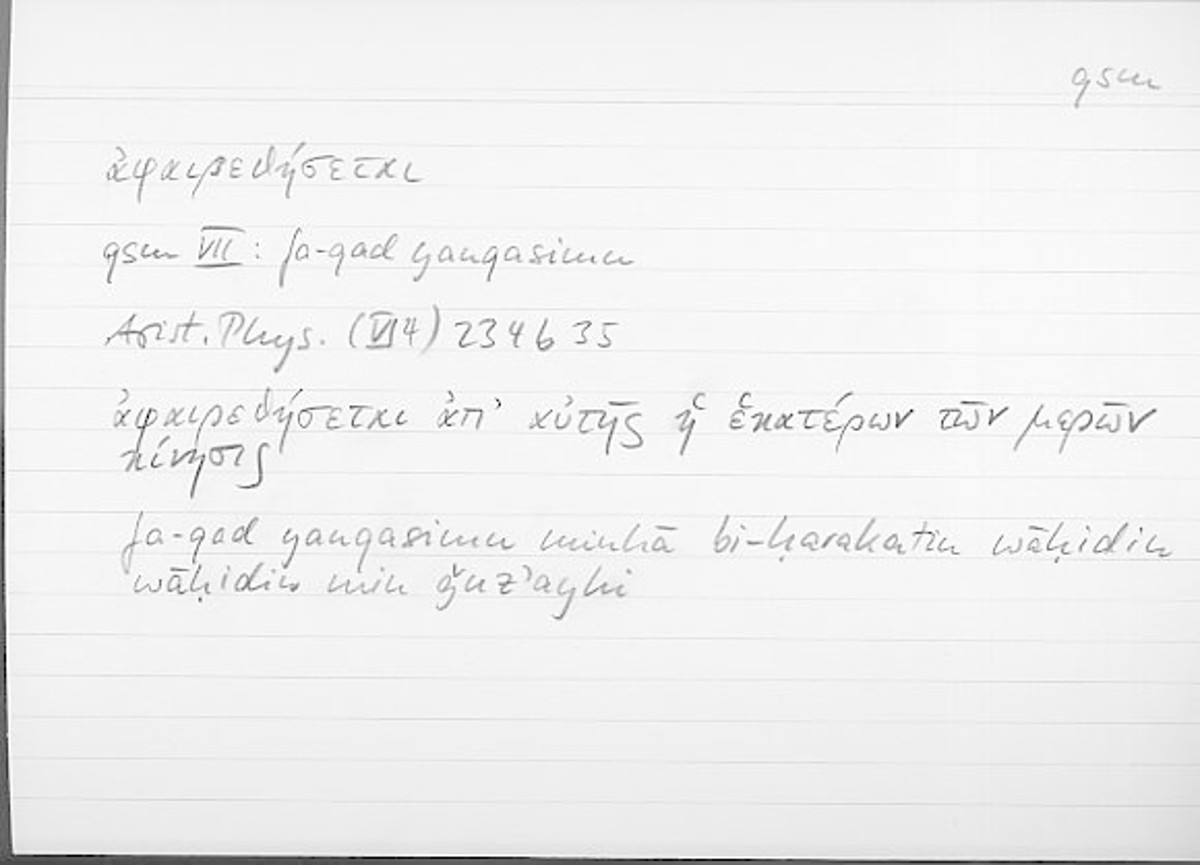 qsm
ἀφαιρεθήσεται
qsm VII: fa-qad yanqasimu
Arist. Phys. (VI 4) 234 b 35
ἀφαιρεθήσεται ἀπ' αὐτῆς ἡ ἑκατέρων τῶν μερῶν
κίνησις
fa-qad yanqasimu minhā bi-ḥarakatin wāḥidin
wāḥidin min ǧuz'ayhi